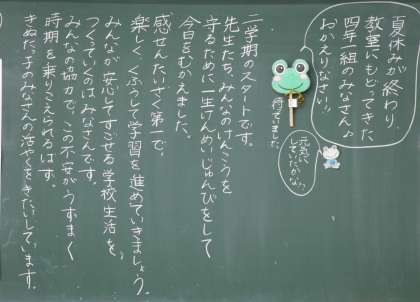 夏休みが終わり、
教室にもどってきた
四年一組のみなさん♪
おかえりなさい!!
待っていました
元気に
していたかな?
二学期のスタートです。
先生たち、みんなのけんこうを
守るために一生けんめいじゅんびをして
今日をむかえました。
感せんたいさく第一で、
楽しく、くふうして学習を進めていきましょう。
みんなが安心してすごせる学校生活を
つくっていくのはみなさんです。
みんなの協力で、この不安がうずまく
時期を乗りこえられるはず。
きぬだっ子のみなさんの活やくをきたいしています。